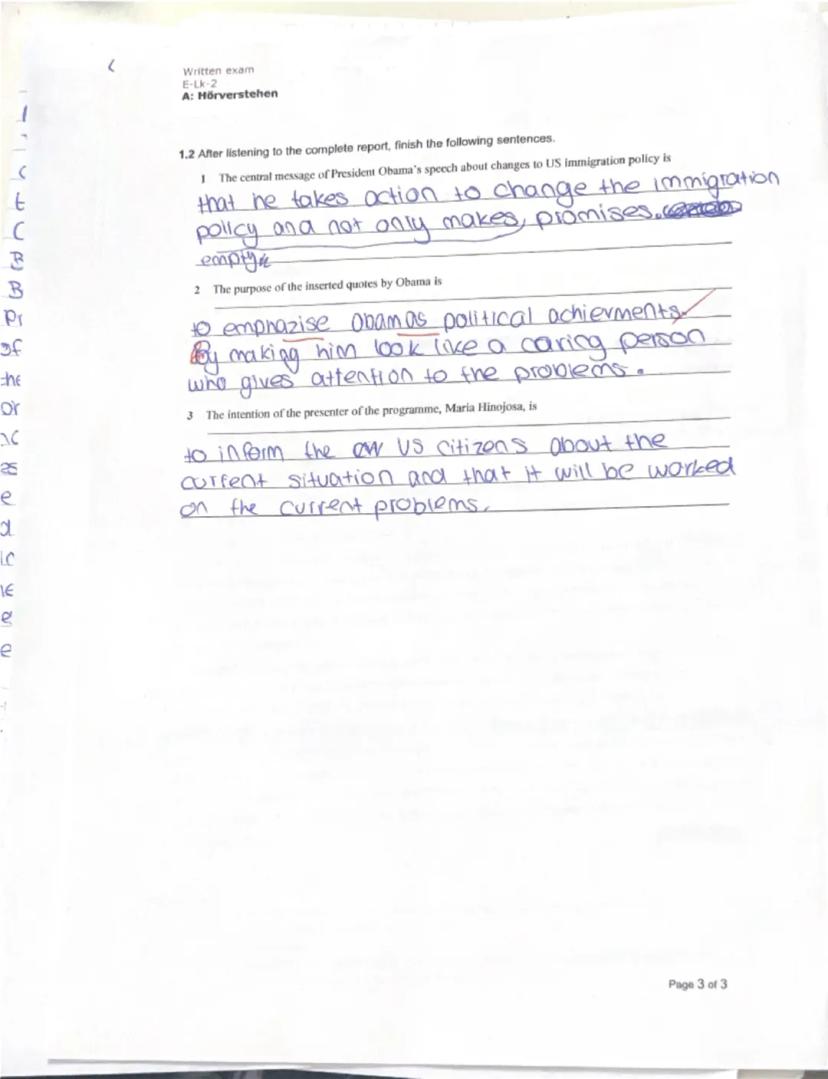 Written exam
E-Lk-2
A: Hörverstehen
1.2 After listening to the complete report, finish the following sentences.
1 The central message of President Obama's speech about changes to US immigration policy is
that he takes action to change the immigration
policy and not only makes, promises.
empty
2 The purpose of the inserted quotes by Obama is
to emphazise Obamas political achievments.
By making him look like a caring person
who gives attention to the problems.
3 The intention of the presenter of the programme, Maria Hinojosa, is
to inform the US citizens about the
current situation and that it will be worked
on the current problems.
Page 3 of 3